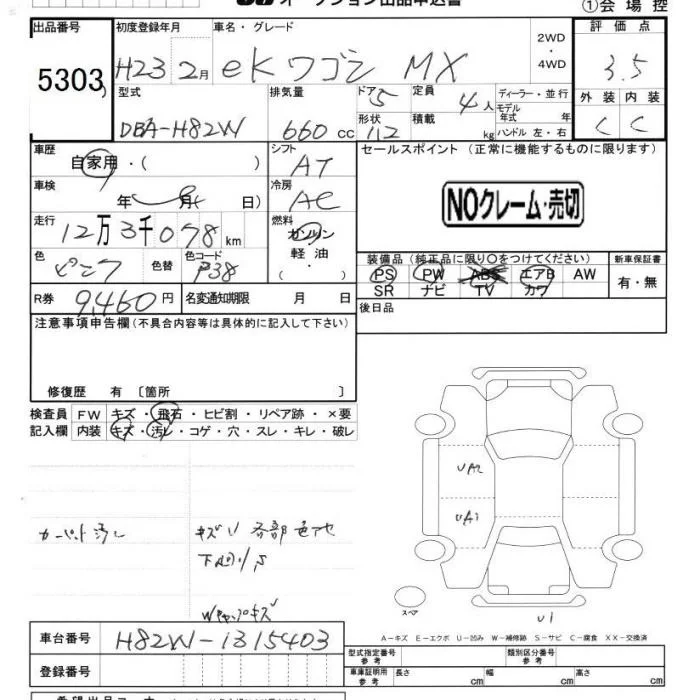 オークション出品申込書
①会場控
出品番号 5303
初度登録年月 H23 2月
車名・グレード eKワゴン MX
2WD・4WD
評価点 3.5
外装 C 内装 C
型式 DBA-H82W
排気量 660 cc
ドア 5
形状 112
定員 4人
積載 kg
ディーラー・並行
モデル年式 年
ハンドル 左・右
車歴 自家用・( )
シフト AT
車検 年 月 日)
冷房 AC
走行 12万3千078km
燃料 ガソリン 軽油・( )
色 ピンク 色替 色コード P38
R券 9,460円
名変通知期限 月 日
セールスポイント (正常に機能するものに限ります)
NOクレーム・売切
装備品(純正品に限り○をつけてください)
PS PW ABS エアB AW
SR ナビ TV カワ
新車保証書 有・無
後日品
注意事項申告欄(不具合内容等は具体的に記入して下さい)
修復歴 有 〔箇所 〕
検査員記入欄
FW キズ・飛石・ヒビ割・リペア跡・×要
内装 キズ・汚レ・コゲ・穴・スレ・キレ・破レ
カーペット汚レ
キズU 各部色アセ
下廻り S
Wキャップキズ
UA2
UA1
U1
スペア
A－キズ E－エクボ U－凹み W－補修跡 S－サビ C－腐食 XX－交換済
車台番号 H82W-1315403
登録番号
型式指定番号 参考
類別区分番号 参考
車庫証明用 参考 長さ cm 幅 cm 高さ cm